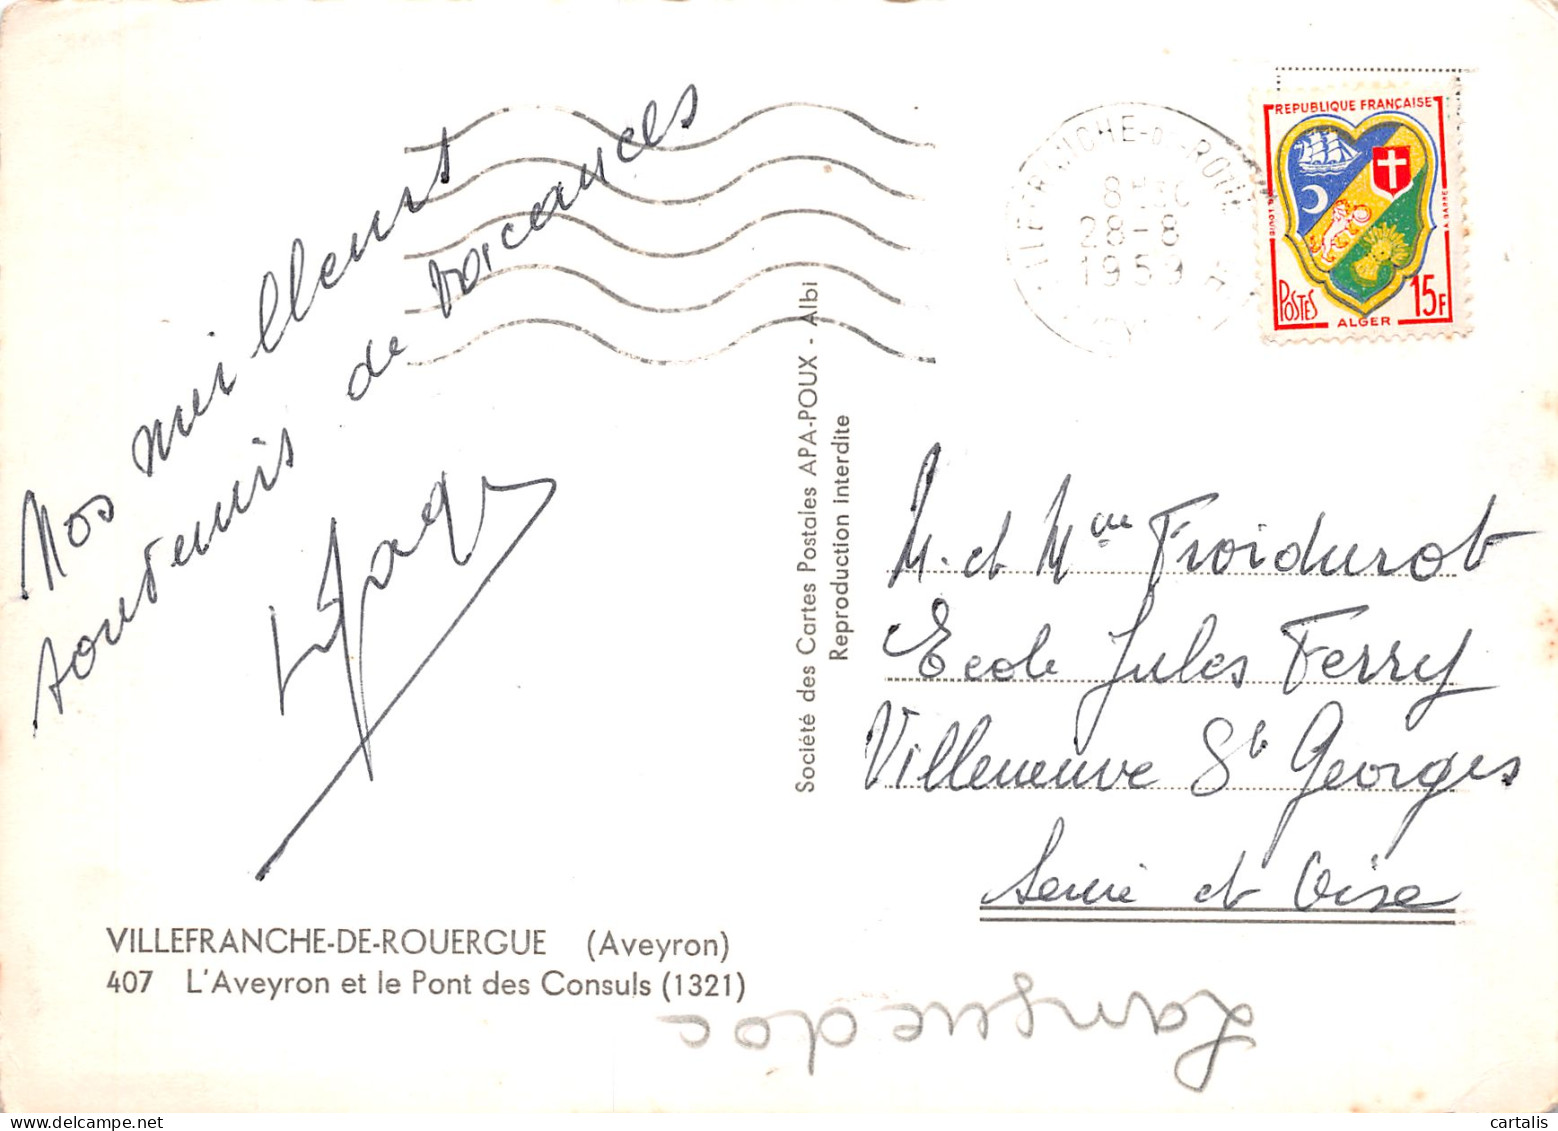 Nos meilleurs
souvenirs de vacances
REPUBLIQUE FRANÇAISE
POSTES
15F
ALGER
8H30
28-8
1959
Société des Cartes Postales APA-POUX - Albi
Reproduction interdite
M. et Mme Froidurot
Ecole Jules Ferry
Villeneuve St Georges
Seine et Oise
VILLEFRANCHE-DE-ROUERGUE (Aveyron)
407 L'Aveyron et le Pont des Consuls (1321)
Languedoc
cartalis